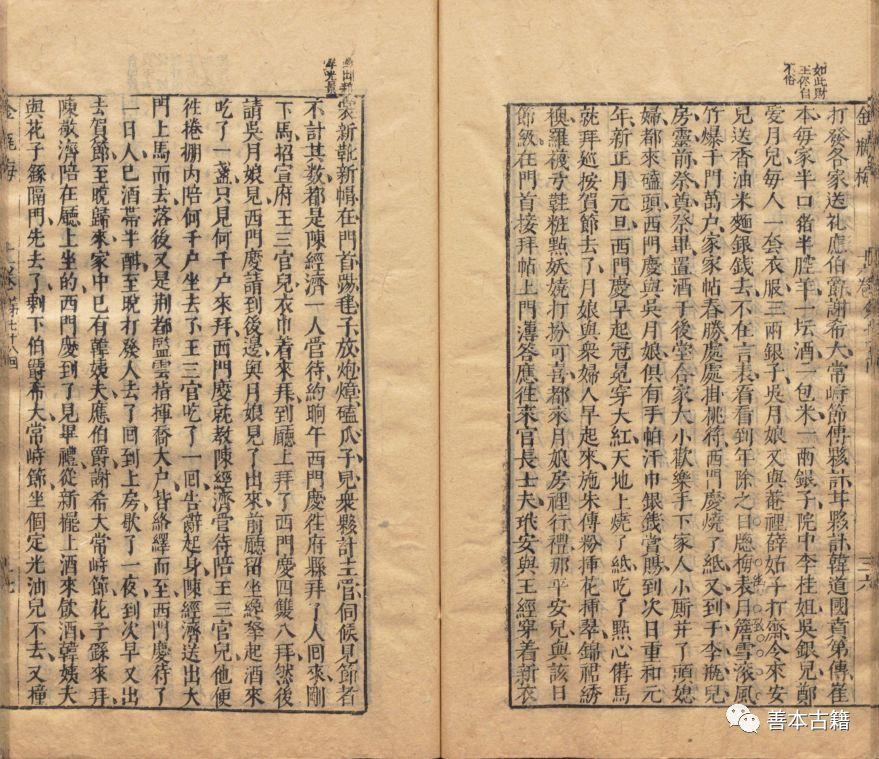 如此財
主你自
不俗
打發各家送礼應伯爵謝希大常峙節傅夥計甘夥計韓道國賁第傳崔
本每家半口猪半腔羊一坛酒一包米一兩銀子院中李桂姐吳銀兒鄭
愛月兒每人一套衣服三兩銀子吳月娘又與菴裡薛姑子打齋令來安
兒送香油米麵銀錢去不在言表看看到年除之日窓梅表月簷雪滾風
竹爆千門萬户家家帖春勝處處掛桃符西門慶燒了紙又到于李瓶兒
房靈前祭奠祭畢置酒于後堂合家大小歡樂手下家人小厮并丫頭媳
婦都來磕頭西門慶與吳月娘俱有手帕汗巾銀錢賞賜到次日重和元
年新正月元旦西門慶早起冠冕穿大紅天地上燒了紙吃了點心俻馬
就拜巡按賀節去了月娘與衆婦人早起來施朱傅粉插花插翠錦裙綉
襖羅襪弓鞋粧點妖嬈打扮可喜都來月娘房裡行禮那平安兒與該日
節級在門首接拜帖上門簿答應徃來官長士夫玳安與王經穿着新衣
裳新靴新帽在門首踢毽子放炮㷟磕瓜子見衆夥計主管伺候見節者
不計其数都是陳經濟一人管待約晌午西門慶徃府縣拜了人回來剛
下馬招宣府王三官兒衣巾着來拜到廳上拜了西門慶四雙八拜然後
請吳月娘見西門慶請到後邊與月娘見了出來前廳留坐纔拏起酒來
吃了一盞只見何千户來拜西門慶就教陳經濟管待陪王三官兒他便
徃捲棚内陪何千户坐去了王三官吃了一回告辭起身陳經濟送出大
門上馬而去落後又是荆都監雲指揮喬大户皆絡繹而至西門慶待了
一日人已酒帶半酣至晚打發人去了囘到上房歇了一夜到次早又出
去賀節至晚歸來家中已有韓姨夫應伯爵謝希大常峙節花子繇來拜
陳敬濟陪在廳上坐的西門慶到了見畢禮從新擺上酒來飲酒韓姨夫
與花子繇隔門先去了剩下伯爵希大常峙節坐個定光油兒不去又撞
金瓶梅
第七十八囘
善本古籍